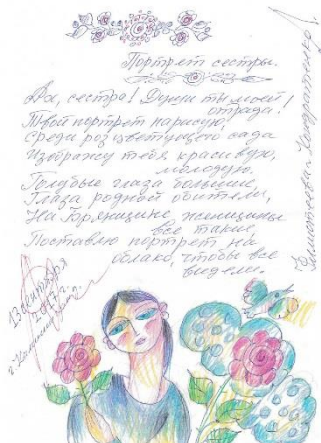 Портрет сестры.
Ах, сестра! Души ты моей
отрада!
Твой портрет нарисую,
Среди розцветущего сада
Изображу тебя красивую,
молодую.
Голубые глаза большие,
Глаза родной обители,
На Брянщине женщины
все такие,
Поставлю портрет на
облако, чтобы все
видели.
13 сентября
2017 г.
Кондратенко